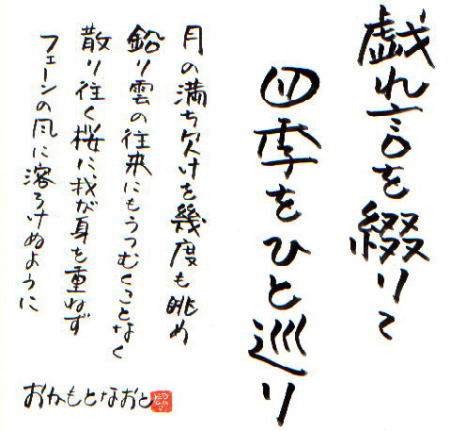 戯れ言を綴りて
四季をひと巡り
月の満ち欠けを幾度も眺め
鉛り雲の往来にもうつむくことなく
散り往く桜に、我が身を重ねず
フェーンの風に溶ろけぬように
おかもとなおと